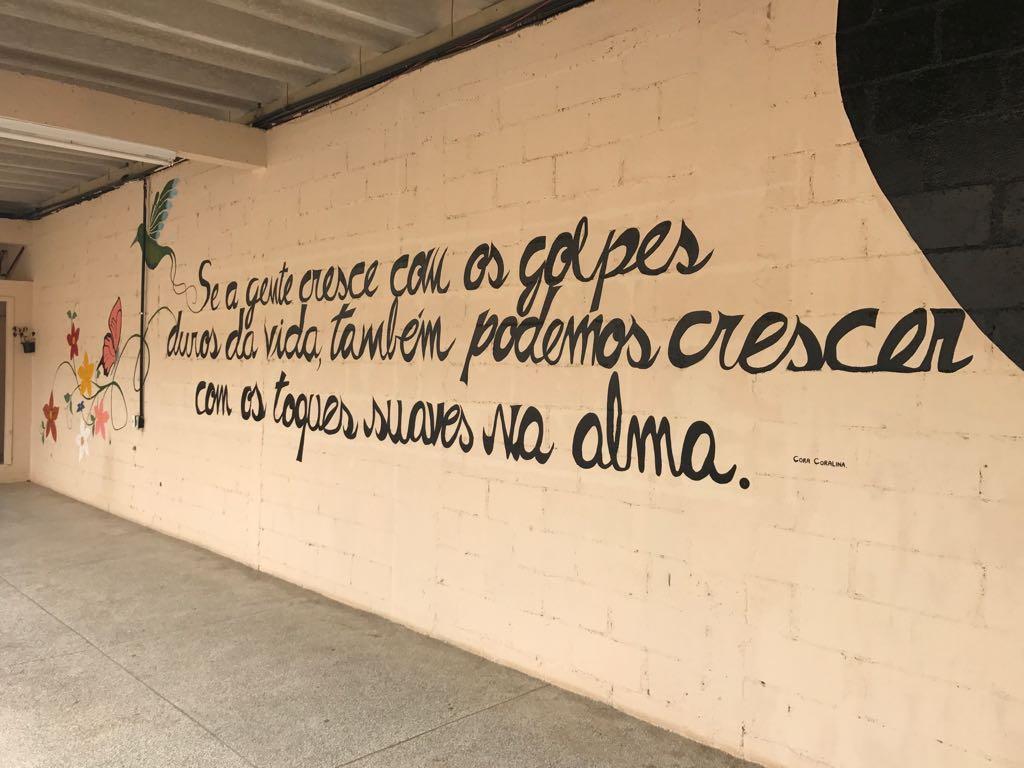 Se a gente cresce com os golpes
duros da vida, também podemos crescer
com os toques suaves na alma.
CORA CORALINA.